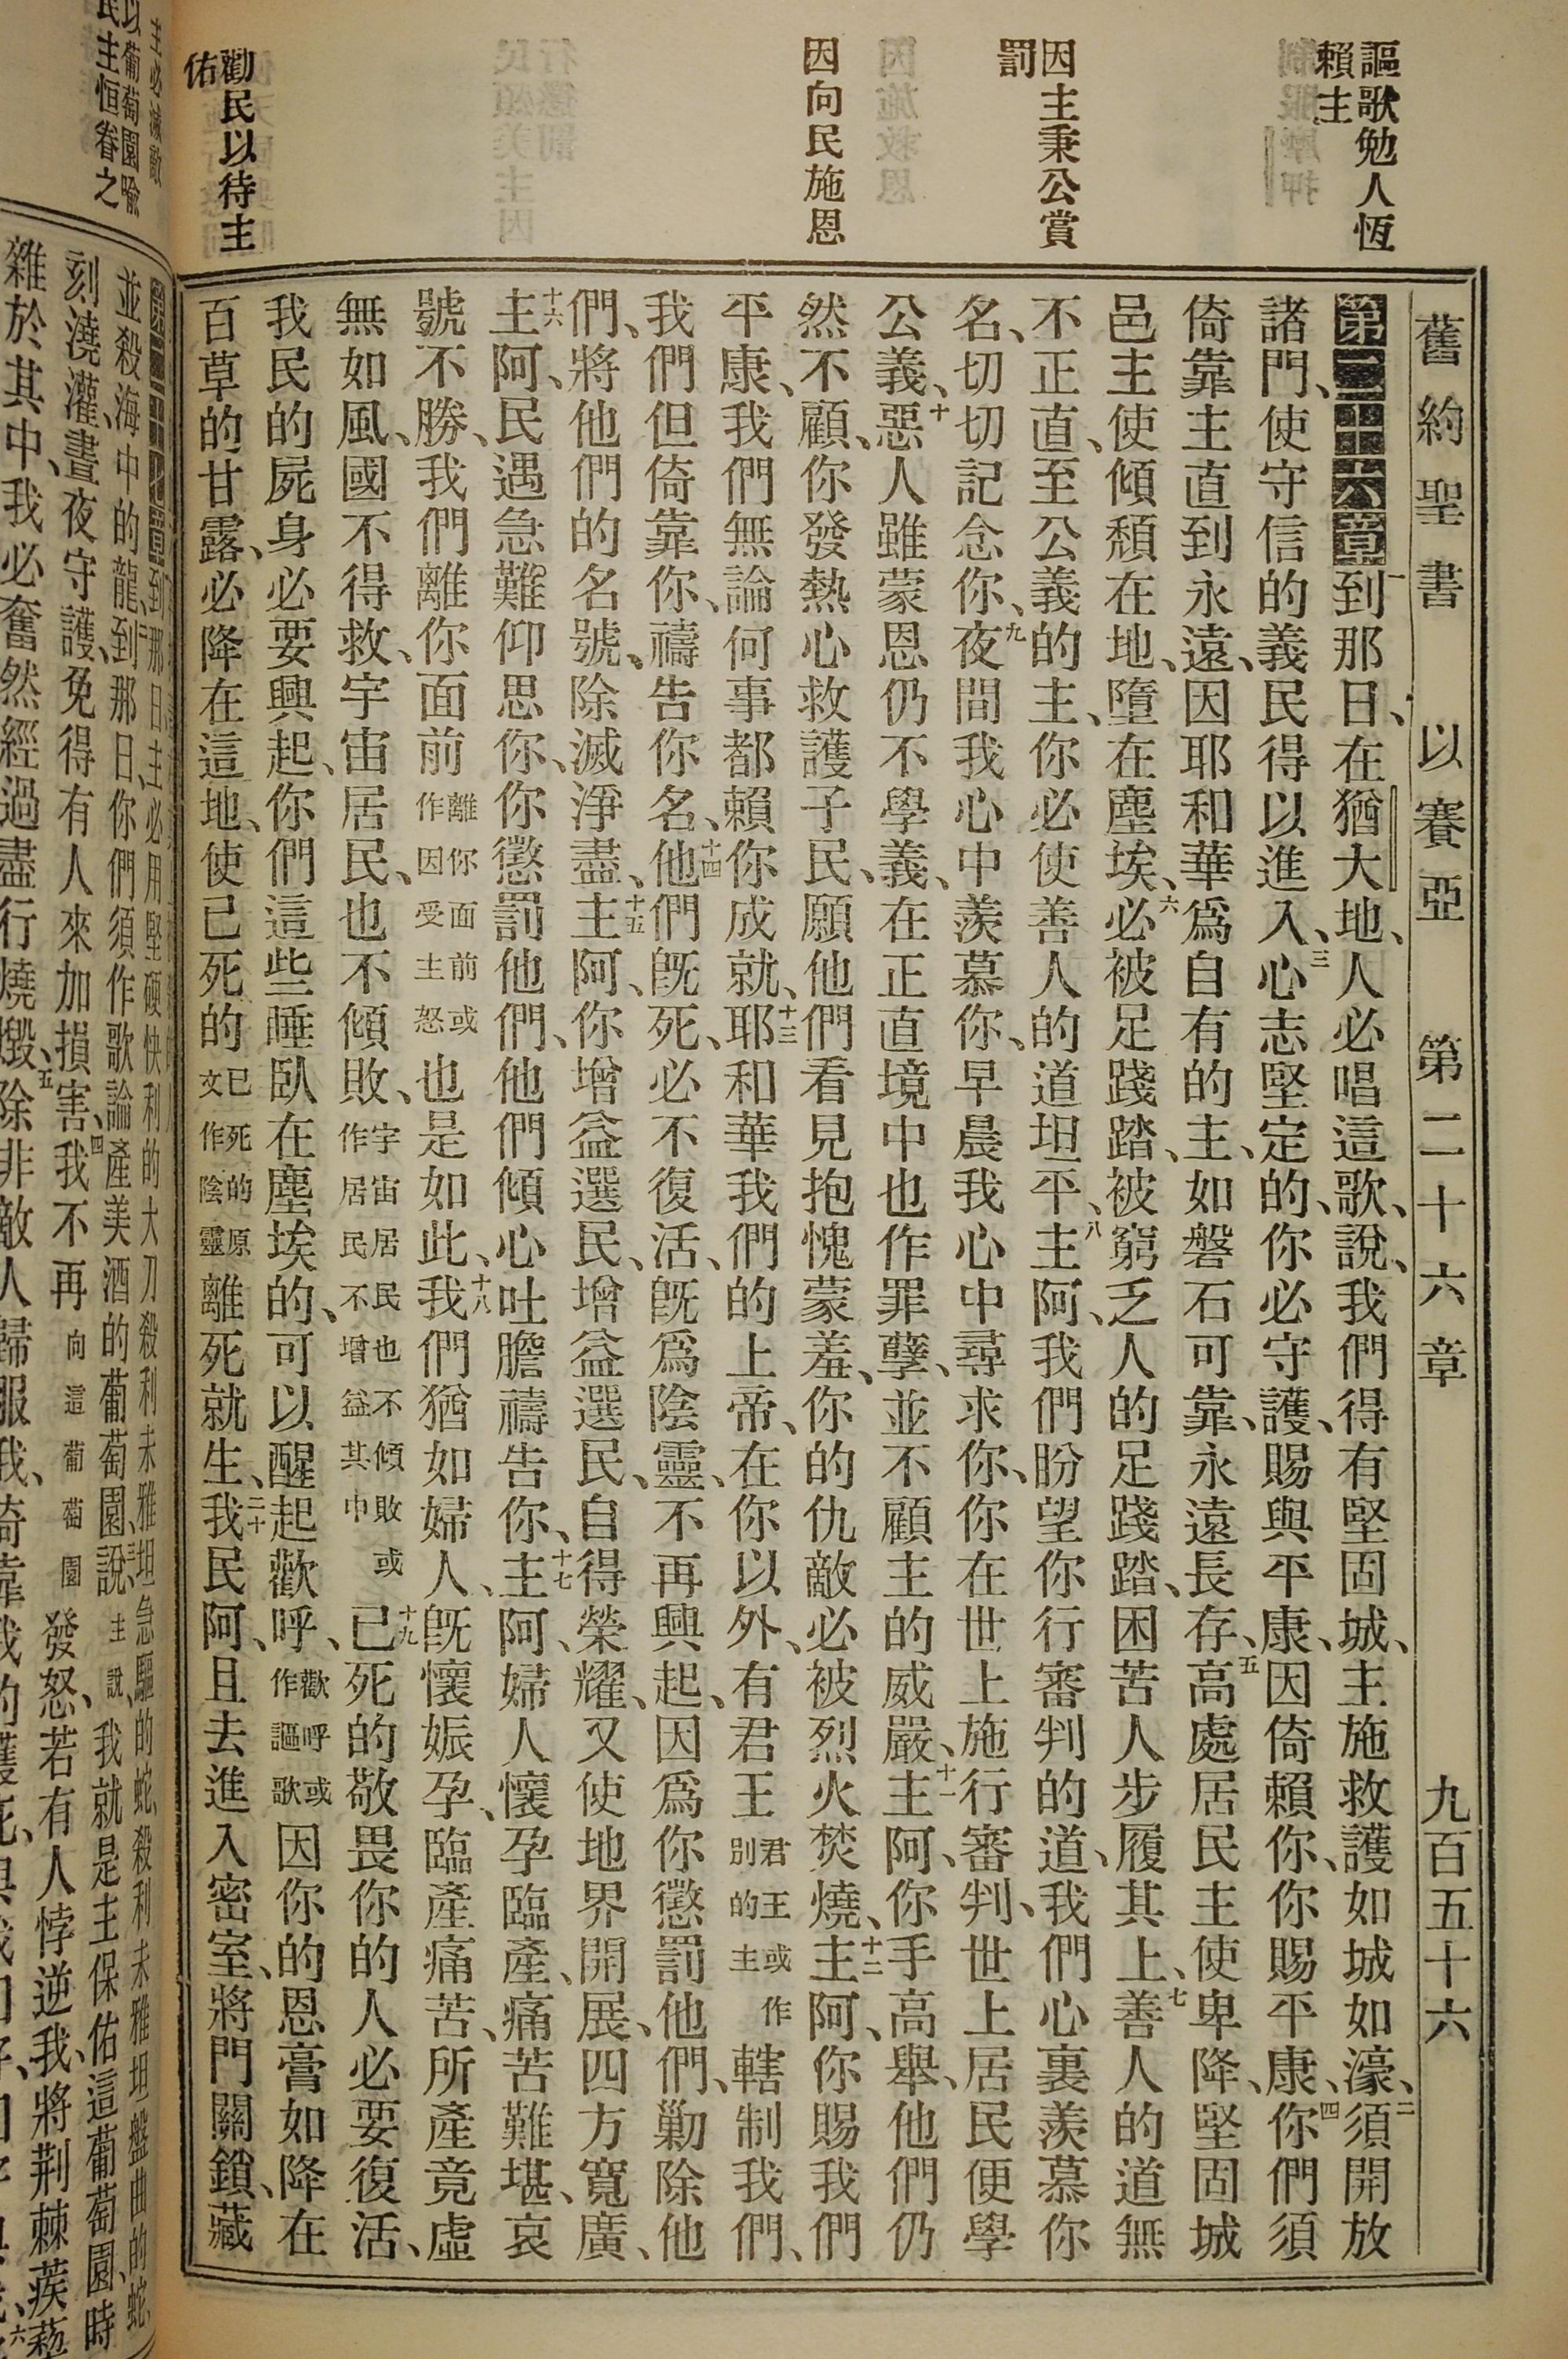 謳歌勉人恆
賴主
因主秉公賞
罰
因向民施恩
勸民以待主
佑
舊約聖書 以賽亞 第二十六章 九百五十六
第二十六章一到那日、在猶大地、人必唱這歌、說、我們得有堅固城、主施救護如城如濠、二須開放
諸門、使守信的義民得以進入、三心志堅定的、你必守護、賜與平康、因倚賴你、你賜平康、四你們須
倚靠主直到永遠、因耶和華爲自有的主、如磐石可靠、永遠長存、五高處居民主使卑降、堅固城
邑主使傾頹在地、墮在塵埃、六必被足踐踏、被窮乏人的足踐踏、困苦人步履其上、七善人的道無
不正直、至公義的主、你必使善人的道坦平、八主阿、我們盼望你行審判的道、我們心裏羨慕你
名、切切記念你、九夜間我心中羨慕你、早晨我心中尋求你、你在世上施行審判、世上居民便學
公義、十惡人雖蒙恩仍不學義、在正直境中也作罪孽、並不顧主的威嚴、十一主阿、你手高舉、他們仍
然不顧、你發熱心救護子民、願他們看見抱愧蒙羞、你的仇敵必被烈火焚燒、十二主阿、你賜我們
平康、我們無論何事都賴你成就、十三耶和華我們的上帝、在你以外、有君王君王或作別的主轄制我們、
我們但倚靠你、禱告你名、十四他們旣死、必不復活、旣爲陰靈、不再興起、因爲你懲罰他們、勦除他
們、將他們的名號、除滅淨盡、十五主阿、你增益選民、增益選民、自得榮耀、又使地界開展、四方寬廣、
十六主阿、民遇急難仰思你、你懲罰他們、他們傾心吐膽禱告你、十七主阿、婦人懷孕臨產、痛苦難堪、哀
號不勝、我們離你面前離你面前或作因受主怒也是如此、十八我們猶如婦人、旣懷娠孕、臨產痛苦、所產竟虛
無如風、國不得救、宇宙居民、也不傾敗、宇宙居民也不傾敗或作居民不增益其中十九已死的敬畏你的人必要復活、
我民的屍身必要興起、你們這些睡臥在塵埃的、可以醒起歡呼、歡呼或作謳歌因你的恩膏如降在
百草的甘露、必降在這地、使已死的已死的原文作陰靈離死就生、二十我民阿、且去進入密室、將門關鎖、藏
主必滅敵
以葡萄園喩
民主恒眷之
到那日、主必用堅硬快利的大刀殺利未雅坦急驅的蛇、殺利未雅坦盤曲的蛇、
並殺海中的龍、二到那日、你們須作歌論產美酒的葡萄園、三說主說、我就是主保佑這葡萄園、時
刻澆灌、晝夜守護、免得有人來加損害、四我不再向這葡萄園發怒、若有人悖逆我、將荆棘蒺藜
雜於其中、我必奮然經過盡行燒燬、五除非敵人歸服我、倚靠我的護庇、與我和好、